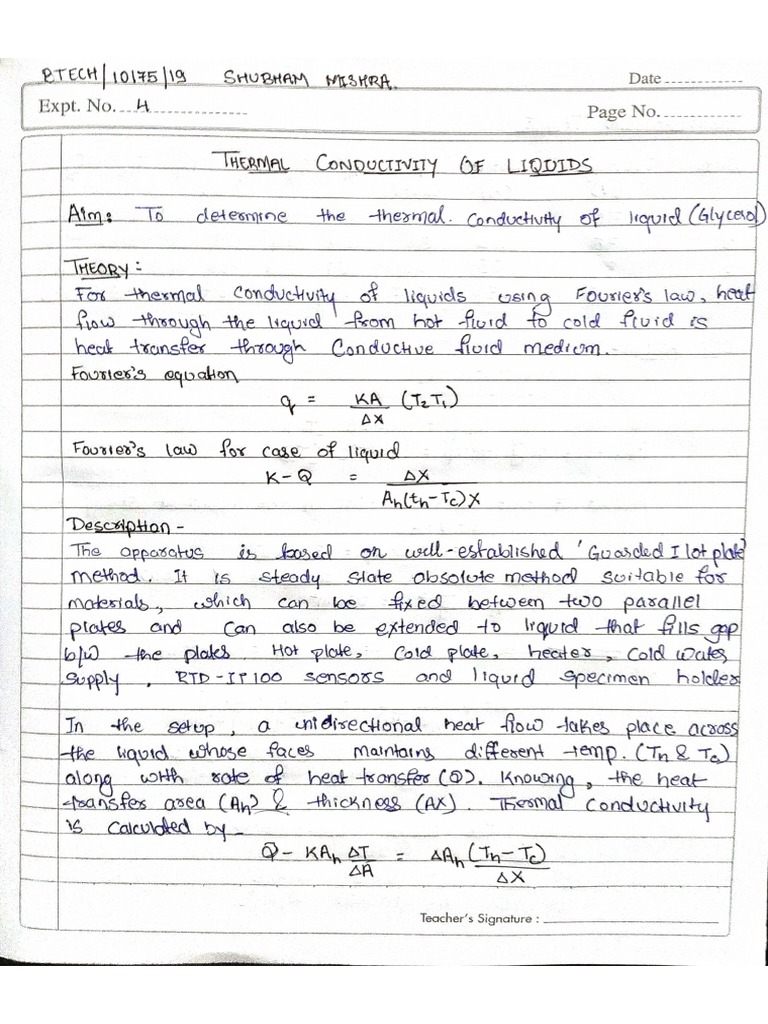 BTECH/10175/19 SHUBHAM MISHRA. Date ............
Expt. No. 4 Page No. ............
THERMAL CONDUCTIVITY OF LIQUIDS
Aim: To determine the thermal. conductivity of liquid (Glycerol)
THEORY:
For thermal conductivity of liquids using Fourier's law, heat
flow through the liquid from hot fluid to cold fluid is
heat transfer through Conductive fluid medium.
Fourier's equation
q = KA/ΔX (T₂T₁)
Fourier's law for case of liquid
K-Q = ΔX/Aₕ(tₕ-Tc)X
Description -
The apparatus is based on well-established 'Guarded Ilot plate'
method. It is steady state absolute method suitable for
materials, which can be fixed between two parallel
plates and can also be extended to liquid that fills gap
b/w the plates. Hot plate, Cold plate, heater, Cold water
supply, RTD-IT100 sensors and liquid specimen holder
In the setup, a unidirectional heat flow takes place across
the liquid whose faces maintains different temp. (Tₕ & Tc)
along with rate of heat transfer (Q). Knowing, the heat
transfer area (Aₕ) & thickness (AX). Thermal conductivity
is calculated by -
Q - KAₕ ΔT/ΔA = ΔAₕ (Tₕ-Tc)/ΔX
Teacher's Signature :